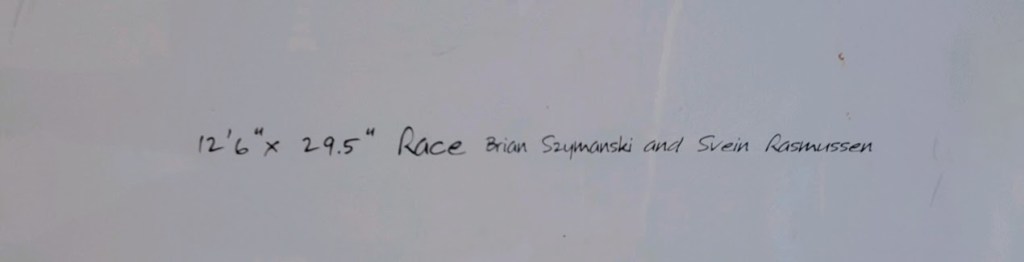 12'6" x 29.5" Race Brian Szymanski and Svein Rasmussen